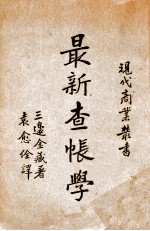 現代商業叢書
最新查帳學
三邊金藏著
袁愈佺譯